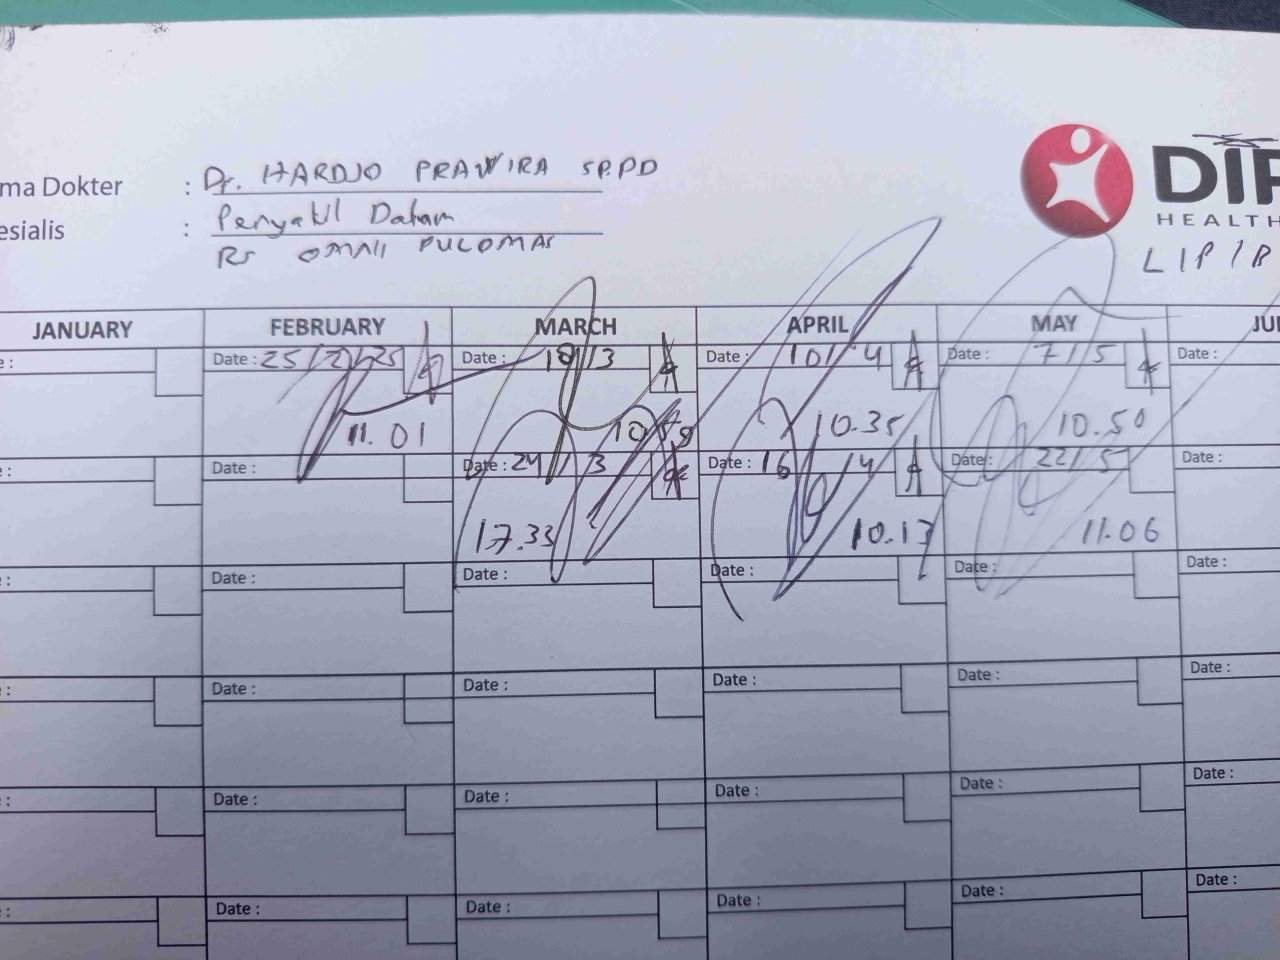 ma Dokter : Dr. HARDJO PRAWIRA SP.PD
esialis : Penyakit Dalam
RS OMNI PULOMAS
DIP
HEALTH
LIPIB
JANUARY FEBRUARY MARCH APRIL MAY JU
e : Date : 25/2/25 Date : 18/3 Date : 10/4 Date : 7/5 Date :
11.01 10.35 10.50
e : Date : Date : 24/3 Date : 16/4 Date : 22/5 Date :
17.33 10.13 11.06
e : Date : Date : Date : Date : Date :
e : Date : Date : Date : Date : Date :
e : Date : Date : Date : Date : Date :
e : Date : Date : Date : Date : Date :